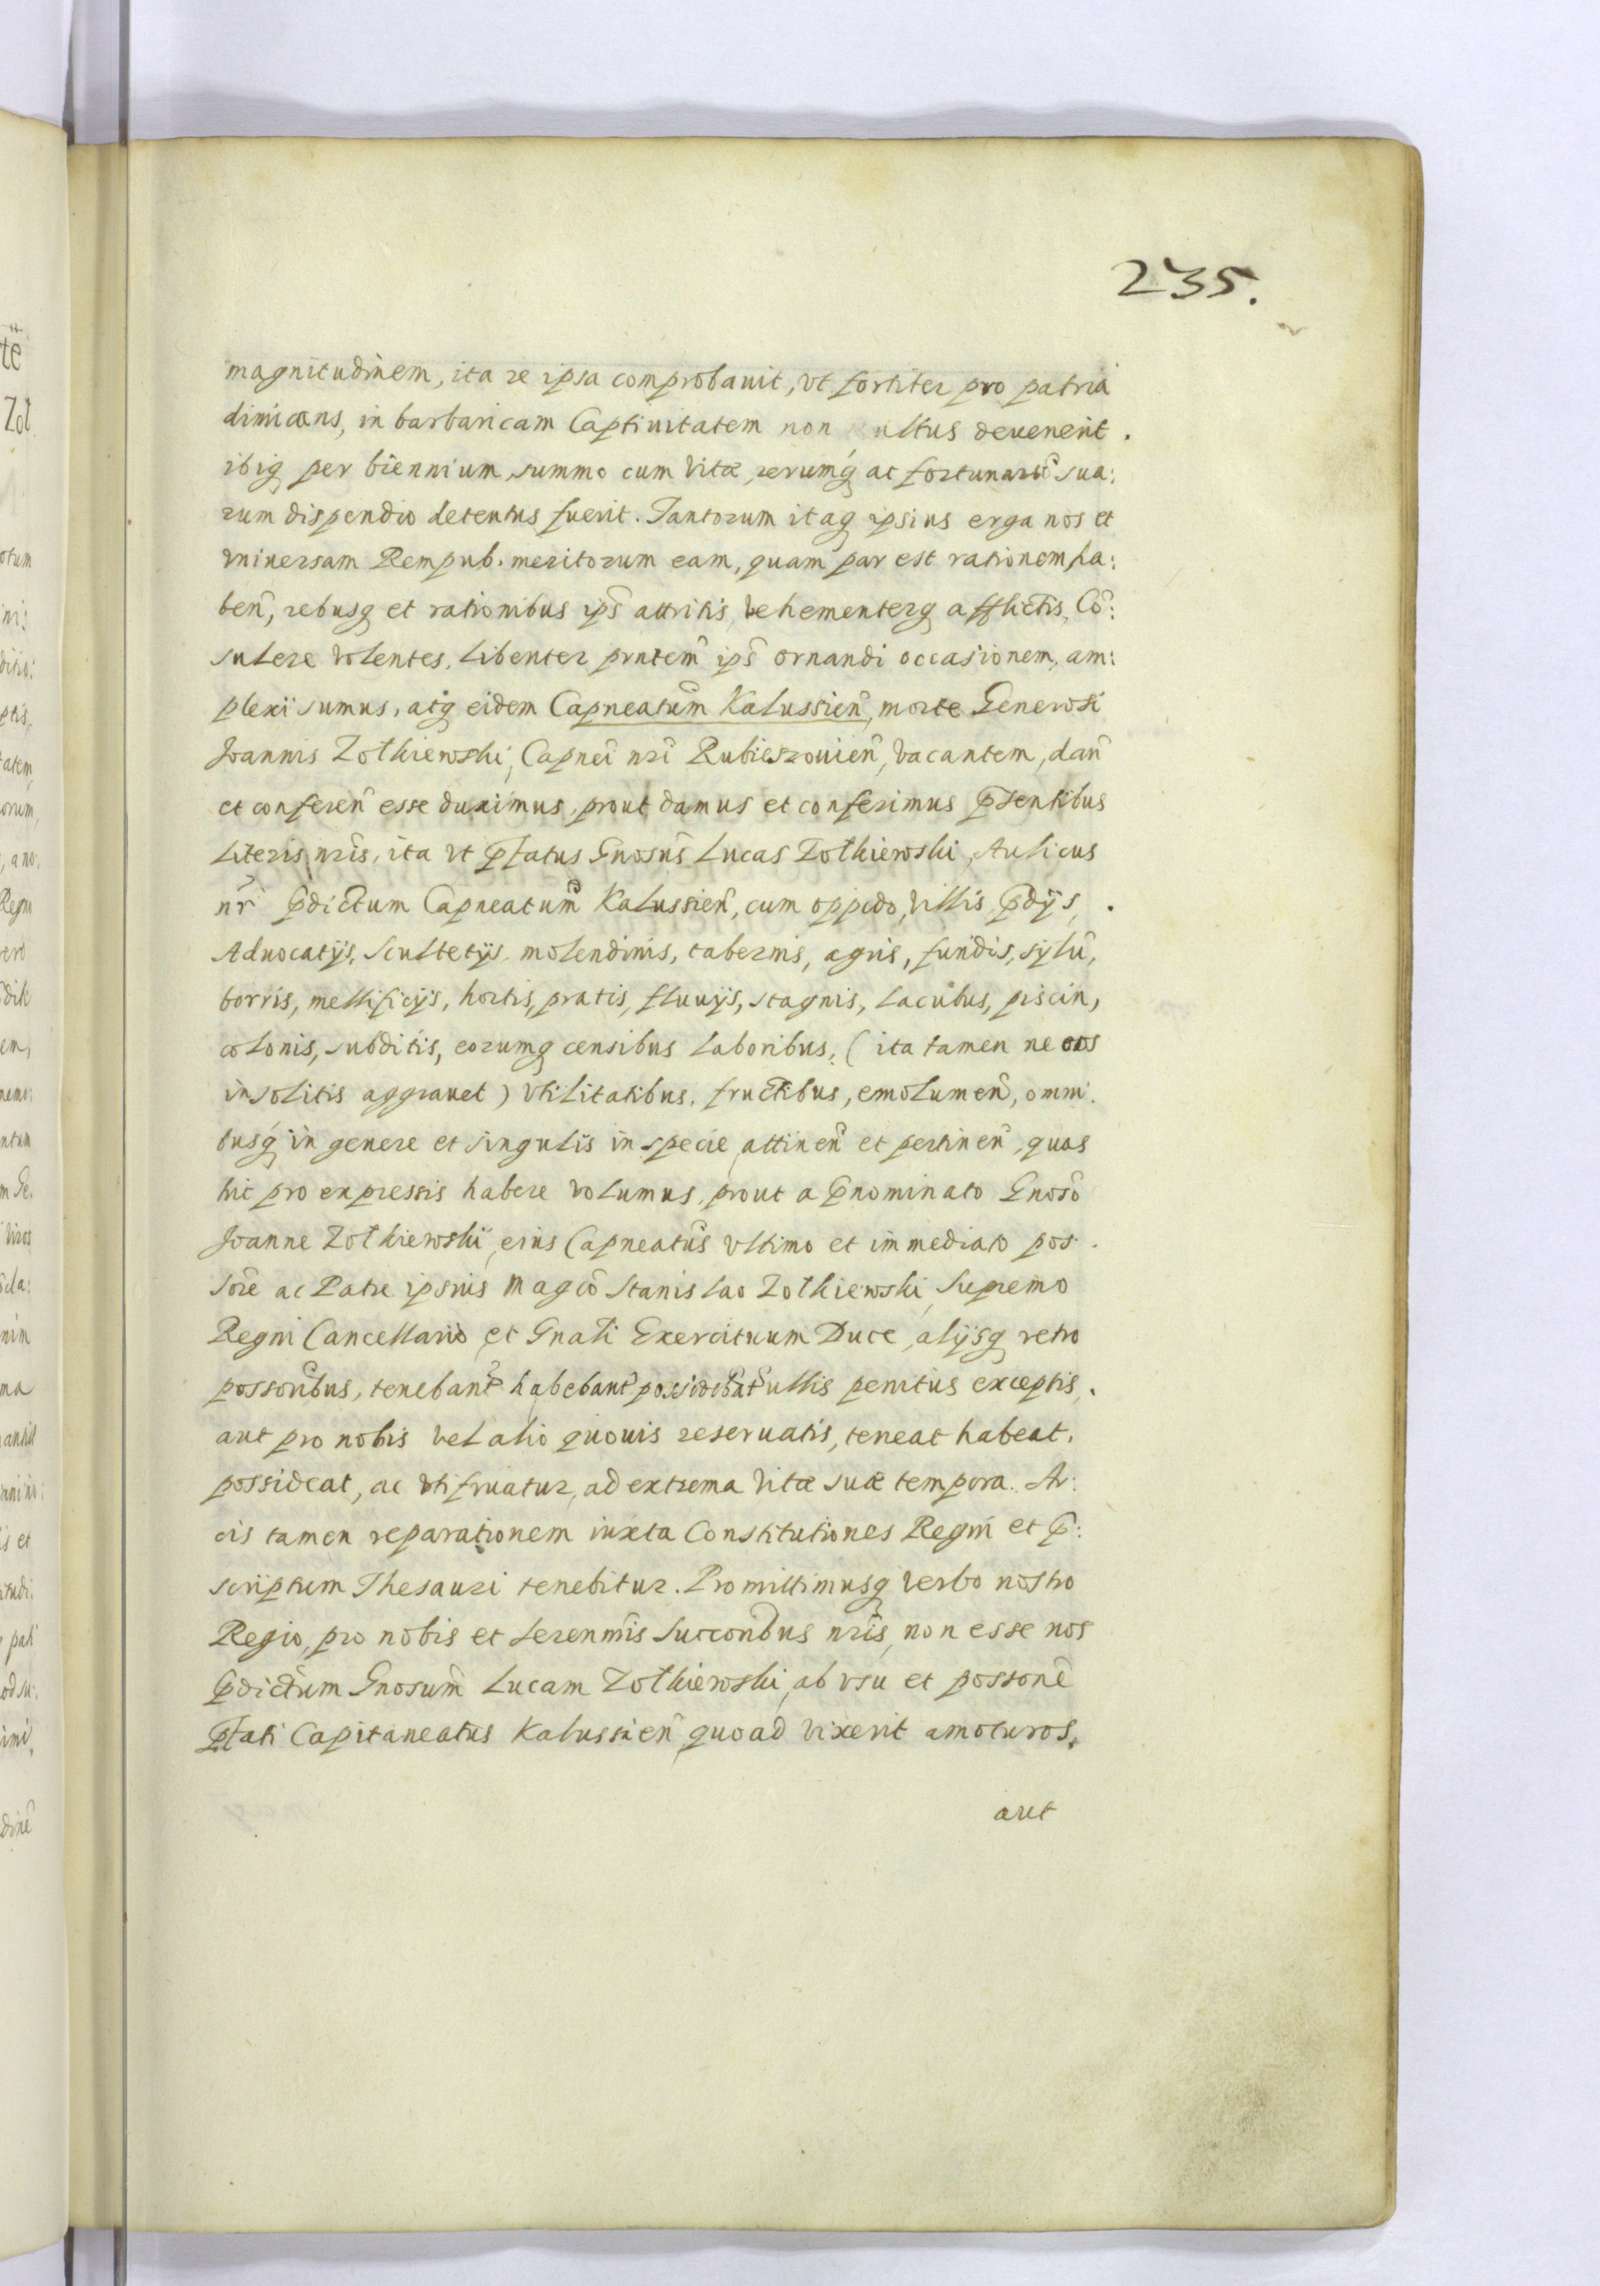 235.
magnitudinem, ita re ipsa comprobauit, vt fortiter pro patria
dimicans, in barbaricam Captiuitatem non ultus deuenerit.
ibiq per biennium summo cum vitæ, rerumq ac fortunarũ sua:
rum dispendio detentus fuerit. Tantorum itaq ipsius erga nos et
vniuersam Rempub. meritorum eam, quam par est rationem ha:
beñ, rebusq et rationibus ips̃ attritis, vehementerq afflictis, Cõ:
sulere volentes, libenter prntem̃ ips̃ ornandi occasionem, am:
plexi sumus, atq eidem Capneatum̃ Kalussieñ, morte Generosi
Joannis Zolkiewski, Capnei nri Rubieszouieñ, vacantem, dañ
et confereñ esse duximus, prout damus et conferimus p̃sentibus
Literis nris, ita vt p̃fatus Gnosus̃ Lucas Zolkiewski, Aulicus
nr̃ p̃dictum Capneatum̃ Kalussieñ, cum oppido, villis, p̃dijs,
Aduocatijs, Scultetijs, molendinis, tabernis, agris, fundis, sylũ,
borris, mellificijs, hortis, pratis, fluuijs, stagnis, lacubus, piscin,
colonis, subditis, eorumq censibus laboribus, (ita tamen ne eos
insolitis aggrauet) vtilitatibus, fructibus, emolumeñ, omni
busq in genere et singulis in specie attineñ et pertineñ, quas
hic pro expressis habere volumus, prout a p̃nominato Gnoso
Joanne Zolkiewski, eius Capneatus̃ vltimo et immediato pos
sore ac Patre ipsius Magco Stanislao Zolkiewski, Supremo
Regni Cancellario et Gnali Exercituum Duce, alijsq retro
possoribus, tenebant̃ habebant̃ possidebat̃ ullis penitus exceptis,
aut pro nobis vel alio quouis reseruatis, teneat habeat,
possideat, ac vtifruatur, ad extrema vitæ suæ tempora. Ar:
cis tamen reparationem iuxta Constitutiones Regni et p̃:
scriptum Thesauri tenebitur. Promittimusq verbo nostro
Regio, pro nobis et Serenmis Succoribus nris, non esse nos
p̃dictum Gnosum̃ Lucam Zolkiewski, ab vsu et possone
p̃fati Capitaneatus Kalussieñ quoad vixerit amoturos,
aut